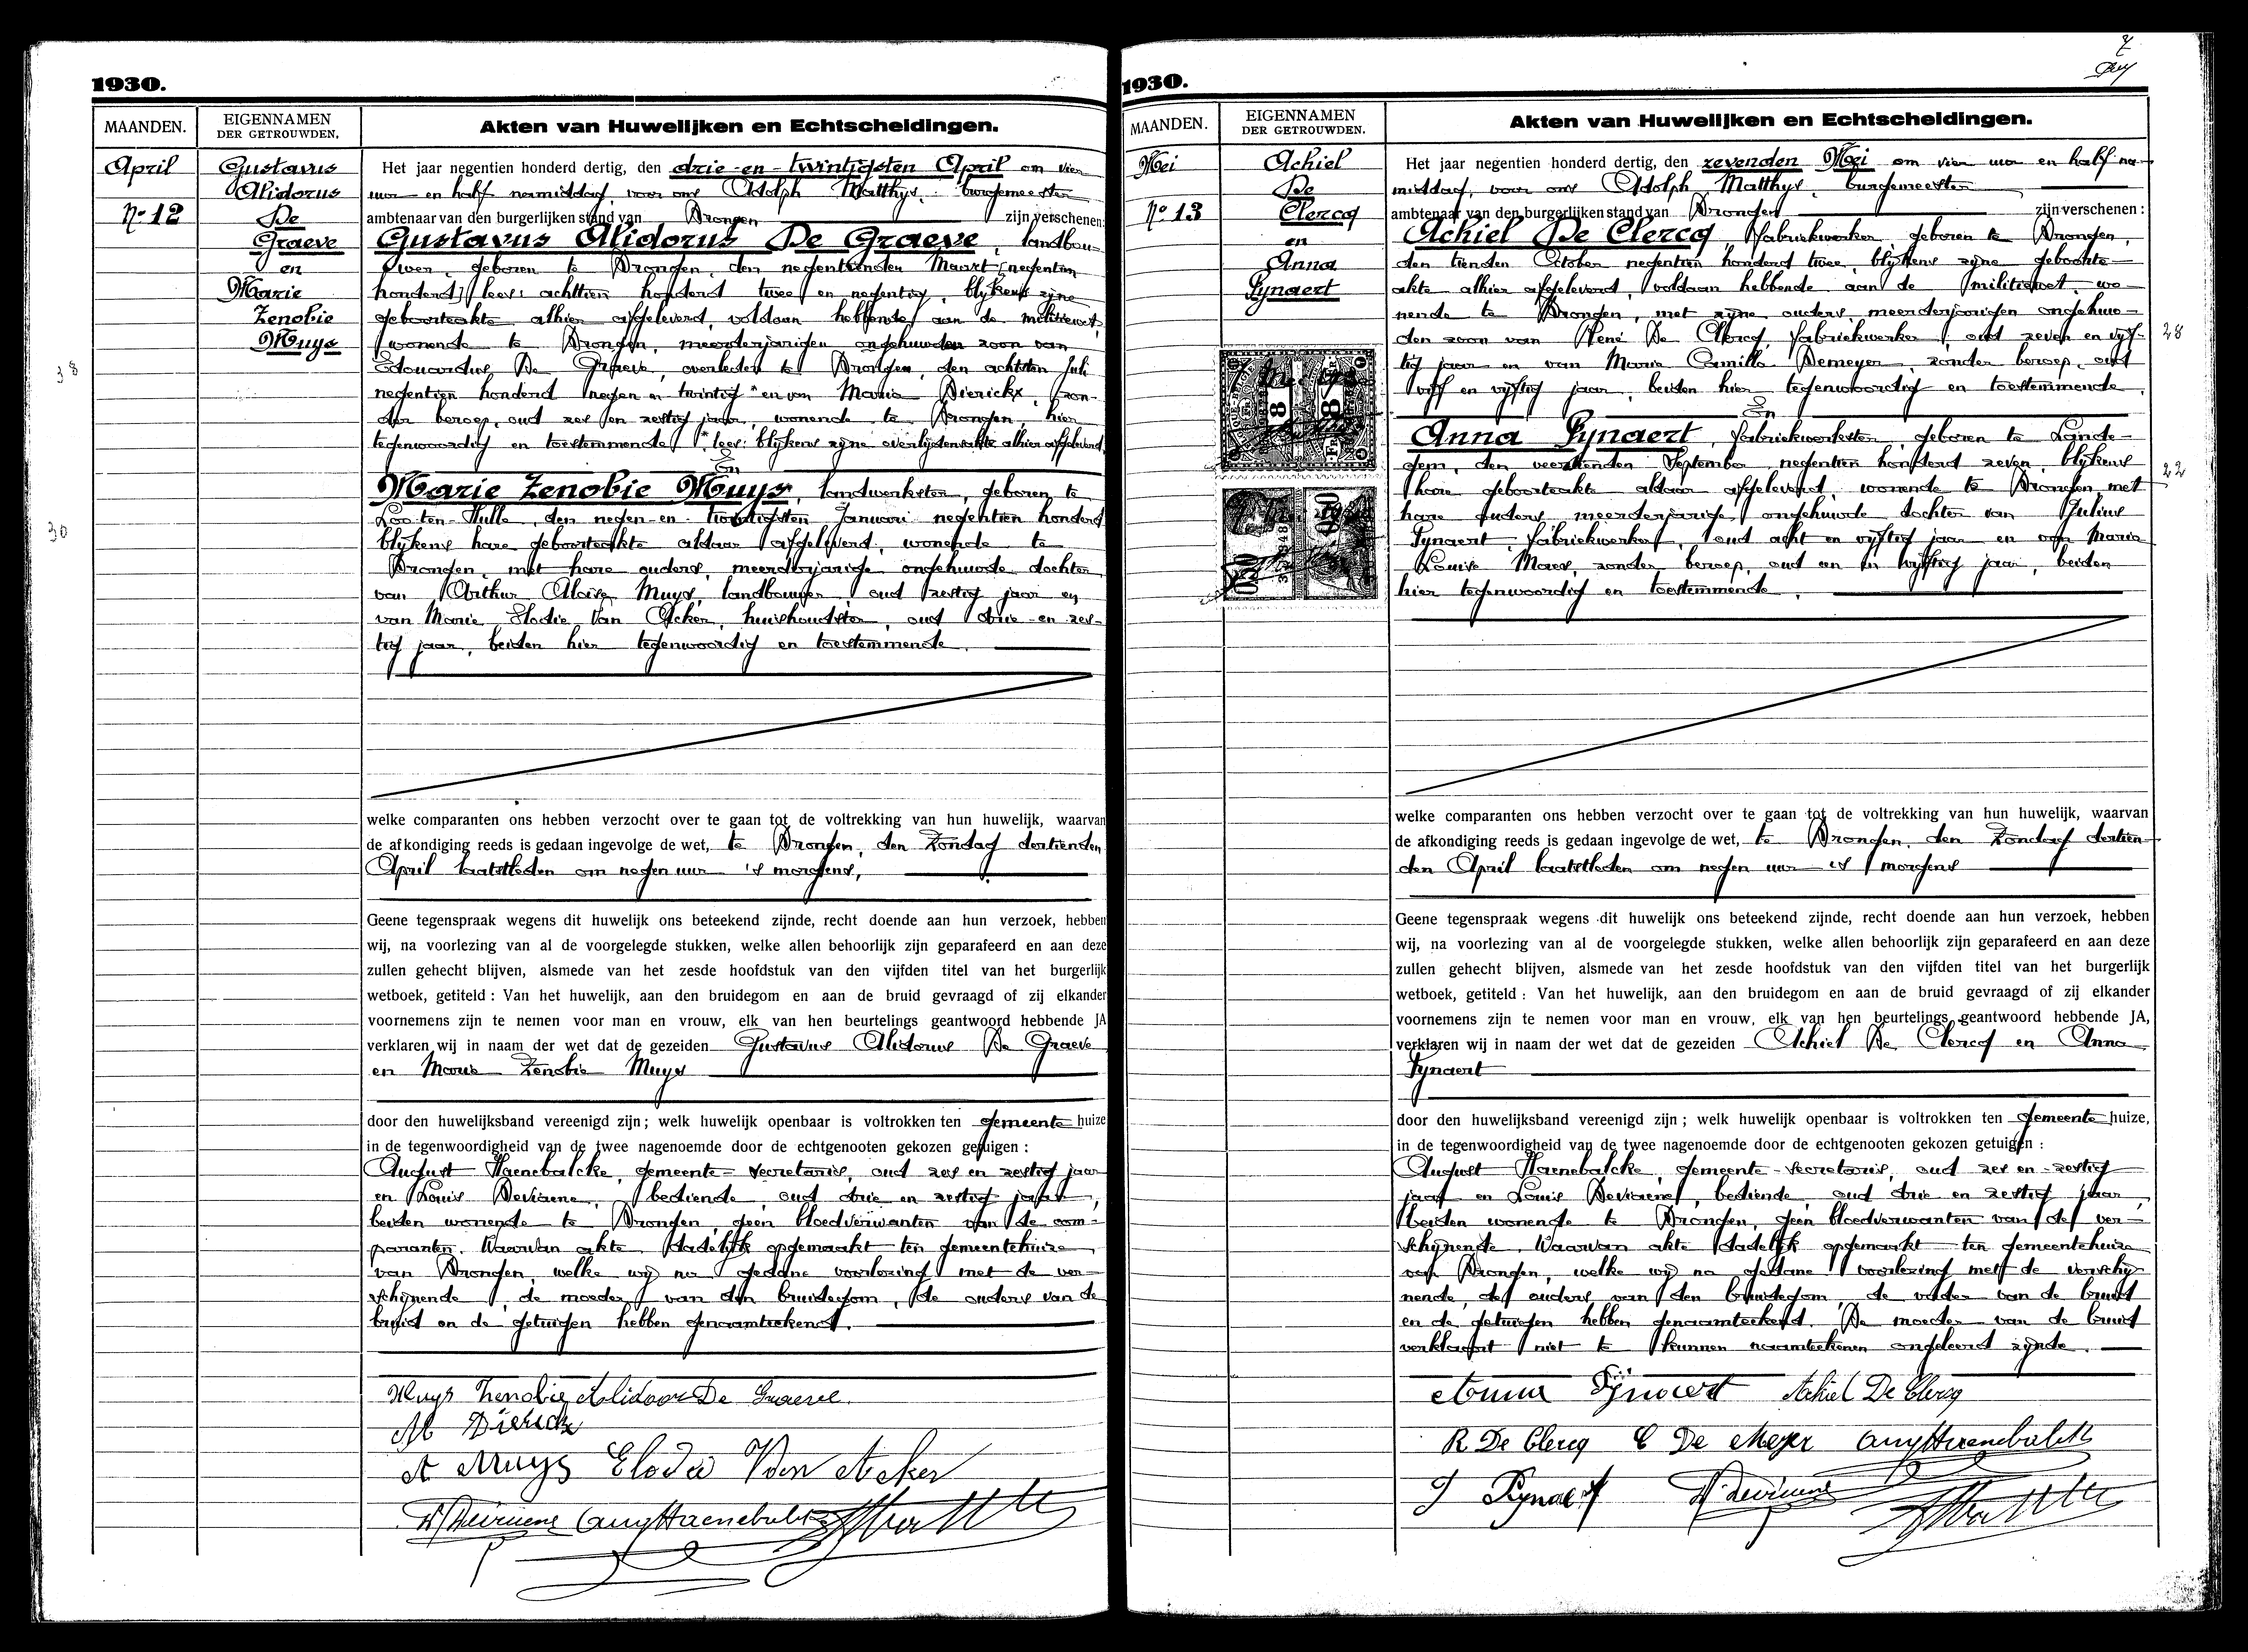 1930.
MAANDEN.
EIGENNAMEN
DER GETROUWDEN.
Akten van Huwelijken en Echtscheidingen.
April
No 12
Gustavus
Alidorus
De
Graeve
en
Marie
Zenobie
Muys
38
30
Het jaar negentien honderd dertig, den drie-en-twintigsten April om vier
uur en half namiddag, voor ons Adolph Matthys, burgemeester
ambtenaar van den burgerlijken stand van Drongen zijn verschenen:
Gustavus Alidorus De Graeve, landbou-
wer, geboren te Drongen, den negentienden Maart (negentien
honderd) lees: achttien honderd twee en negentig, blijkens zijne
geboorteakte alhier afgeleverd, voldaan hebbende aan de militiewet,
wonende te Drongen, meerderjarigen ongehuwden zoon van
Edouardus De Graeve, overleden te Drongen, den achtsten Juli
negentien honderd negen en twintig * en van Maria Dierickx, zon-
der beroep, oud zes en zestig jaar, wonende te Drongen, hier
tegenwoordig en toestemmende * lees: blijkens zijne overlijdensakte alhier afgeleverd
En
Marie Zenobie Muys, landwerkster, geboren te
Loo-ten-Hulle, den negen-en-twintigsten Januari negentien honderd
blijkens hare geboorteakte aldaar afgeleverd, wonende te
Drongen, met hare ouders, meerderjarige ongehuwde dochter
van Arthur Aloïse Muys, landbouwer, oud zestig jaar en
van Marie Elodie Van Acker, huishoudster, oud drie-en-zes-
tig jaar, beiden hier tegenwoordig en toestemmende.
welke comparanten ons hebben verzocht over te gaan tot de voltrekking van hun huwelijk, waarvan
de afkondiging reeds is gedaan ingevolge de wet, te Drongen, den Zondag dertienden
April laatstleden om negen uur 's morgens,
Geene tegenspraak wegens dit huwelijk ons beteekend zijnde, recht doende aan hun verzoek, hebben
wij, na voorlezing van al de voorgelegde stukken, welke allen behoorlijk zijn geparafeerd en aan deze
zullen gehecht blijven, alsmede van het zesde hoofdstuk van den vijfden titel van het burgerlijk
wetboek, getiteld : Van het huwelijk, aan den bruidegom en aan de bruid gevraagd of zij elkander
voornemens zijn te nemen voor man en vrouw, elk van hen beurtelings geantwoord hebbende JA
verklaren wij in naam der wet dat de gezeiden Gustavus Alidorus De Graeve
en Marie Zenobie Muys
door den huwelijksband vereenigd zijn ; welk huwelijk openbaar is voltrokken ten gemeente huize
in de tegenwoordigheid van de twee nagenoemde door de echtgenooten gekozen getuigen :
August Haenebalcke, gemeente-secretaris, oud zes en zestig jaar
en Louis Deviaene, bediende, oud drie en zestig jaar,
beiden wonende te Drongen, geen bloedverwanten van de com-
paranten. Waarvan akte dadelijk opgemaakt ten gemeentehuize
van Drongen, welke wij na gedane voorlezing met de ver-
schijnende, de moeder van den bruidegom, de ouders van de
bruid en de getuigen hebben genaamteekend.
Muys Zenobie Alidoor De Graeve
M Dierickx
A Muys Elodie Van Acker
L Deviaene Aug Haenebalcke
1930.
MAANDEN.
EIGENNAMEN
DER GETROUWDEN.
Akten van Huwelijken en Echtscheidingen.
7
Mei
No 13
Achiel
De
Clercq
en
Anna
Pynaert
28
22
Het jaar negentien honderd dertig, den zevenden Mei om vier uur en half na-
middag, voor ons Adolph Matthys, burgemeester
ambtenaar van den burgerlijken stand van Drongen zijn verschenen :
Achiel De Clercq, fabriekwerker, geboren te Drongen,
den tienden October negentien honderd twee, blijkens zijne geboorte-
akte alhier afgeleverd, voldaan hebbende aan de militiewet, wo-
nende te Drongen, met zijne ouders, meerderjarigen ongehuw-
den zoon van René De Clercq, fabriekwerker, oud zeven en vijf-
tig jaar en van Marie Camille Demeyer, zonder beroep, oud
vijf en vijftig jaar, beiden hier tegenwoordig en toestemmende.
En
Anna Pynaert, fabriekwerkster, geboren te Landegem, den veertienden September negentien honderd zeven, blijkens
hare geboorteakte aldaar afgeleverd, wonende te Drongen met
hare ouders, meerderjarige ongehuwde dochter van Julius
Pynaert, fabriekwerker, oud acht en vijftig jaar en van Marie
Louise Maes, zonder beroep, oud een en vijftig jaar, beiden
hier tegenwoordig en toestemmende.
welke comparanten ons hebben verzocht over te gaan tot de voltrekking van hun huwelijk, waarvan
de afkondiging reeds is gedaan ingevolge de wet, te Drongen, den Zondag dertien-
den April laatstleden om negen uur 's morgens
Geene tegenspraak wegens dit huwelijk ons beteekend zijnde, recht doende aan hun verzoek, hebben
wij, na voorlezing van al de voorgelegde stukken, welke allen behoorlijk zijn geparafeerd en aan deze
zullen gehecht blijven, alsmede van het zesde hoofdstuk van den vijfden titel van het burgerlijk
wetboek, getiteld : Van het huwelijk, aan den bruidegom en aan de bruid gevraagd of zij elkander
voornemens zijn te nemen voor man en vrouw, elk van hen beurtelings geantwoord hebbende JA,
verklaren wij in naam der wet dat de gezeiden Achiel De Clercq en Anna
Pynaert
door den huwelijksband vereenigd zijn ; welk huwelijk openbaar is voltrokken ten gemeente huize,
in de tegenwoordigheid van de twee nagenoemde door de echtgenooten gekozen getuigen :
August Haenebalcke, gemeente-secretaris, oud zes en-zestig
jaar en Louis Deviaene, bediende, oud drie en zestig jaar,
beiden wonende te Drongen, geen bloedverwanten van de ver-
schijnende. Waarvan akte dadelijk opgemaakt ten gemeentehuize
van Drongen, welke wij na gedane voorlezing met de verschij-
nende, de ouders van den bruidegom, de vader van de bruid
en de getuigen hebben genaamteekend. De moeder van de bruid
verklaart niet te kunnen naamteekenen ongeleerd zijnde.
Anna Pijnaert Achiel De Clercq
R De Clercq C De Meyer Aug Haenebalcke
J Pynaert L Deviaene